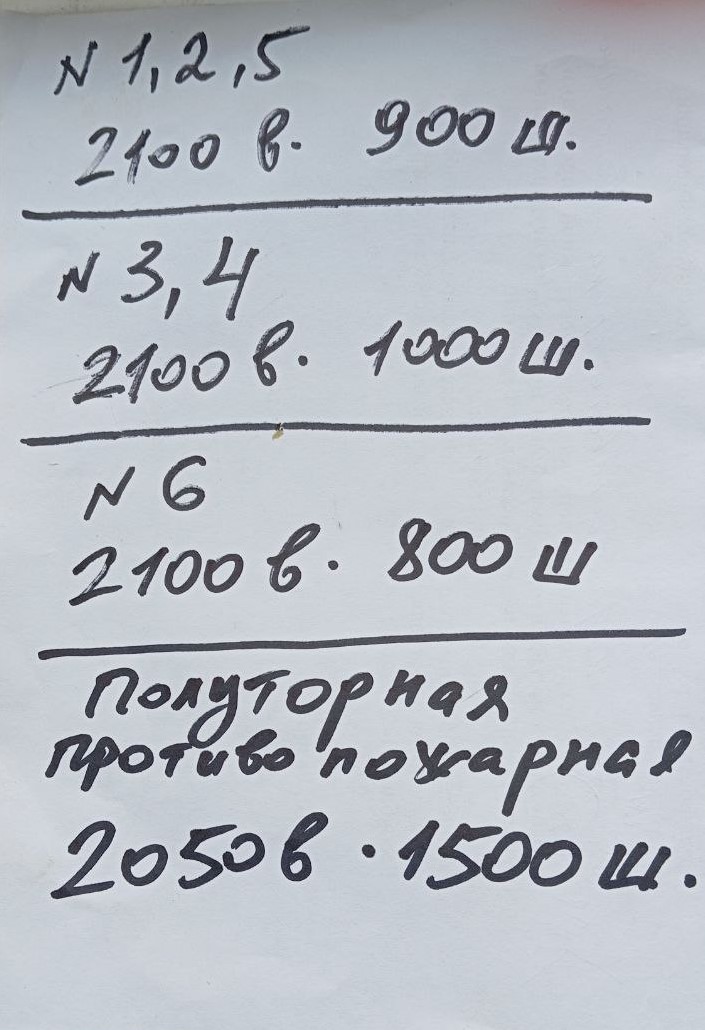 N 1,2,5
2100 в. 900 ш.
N 3,4
2100 в. 1000 ш.
N 6
2100 в. 800 ш
Полуторная
противопожарная
2050 в. 1500 ш.